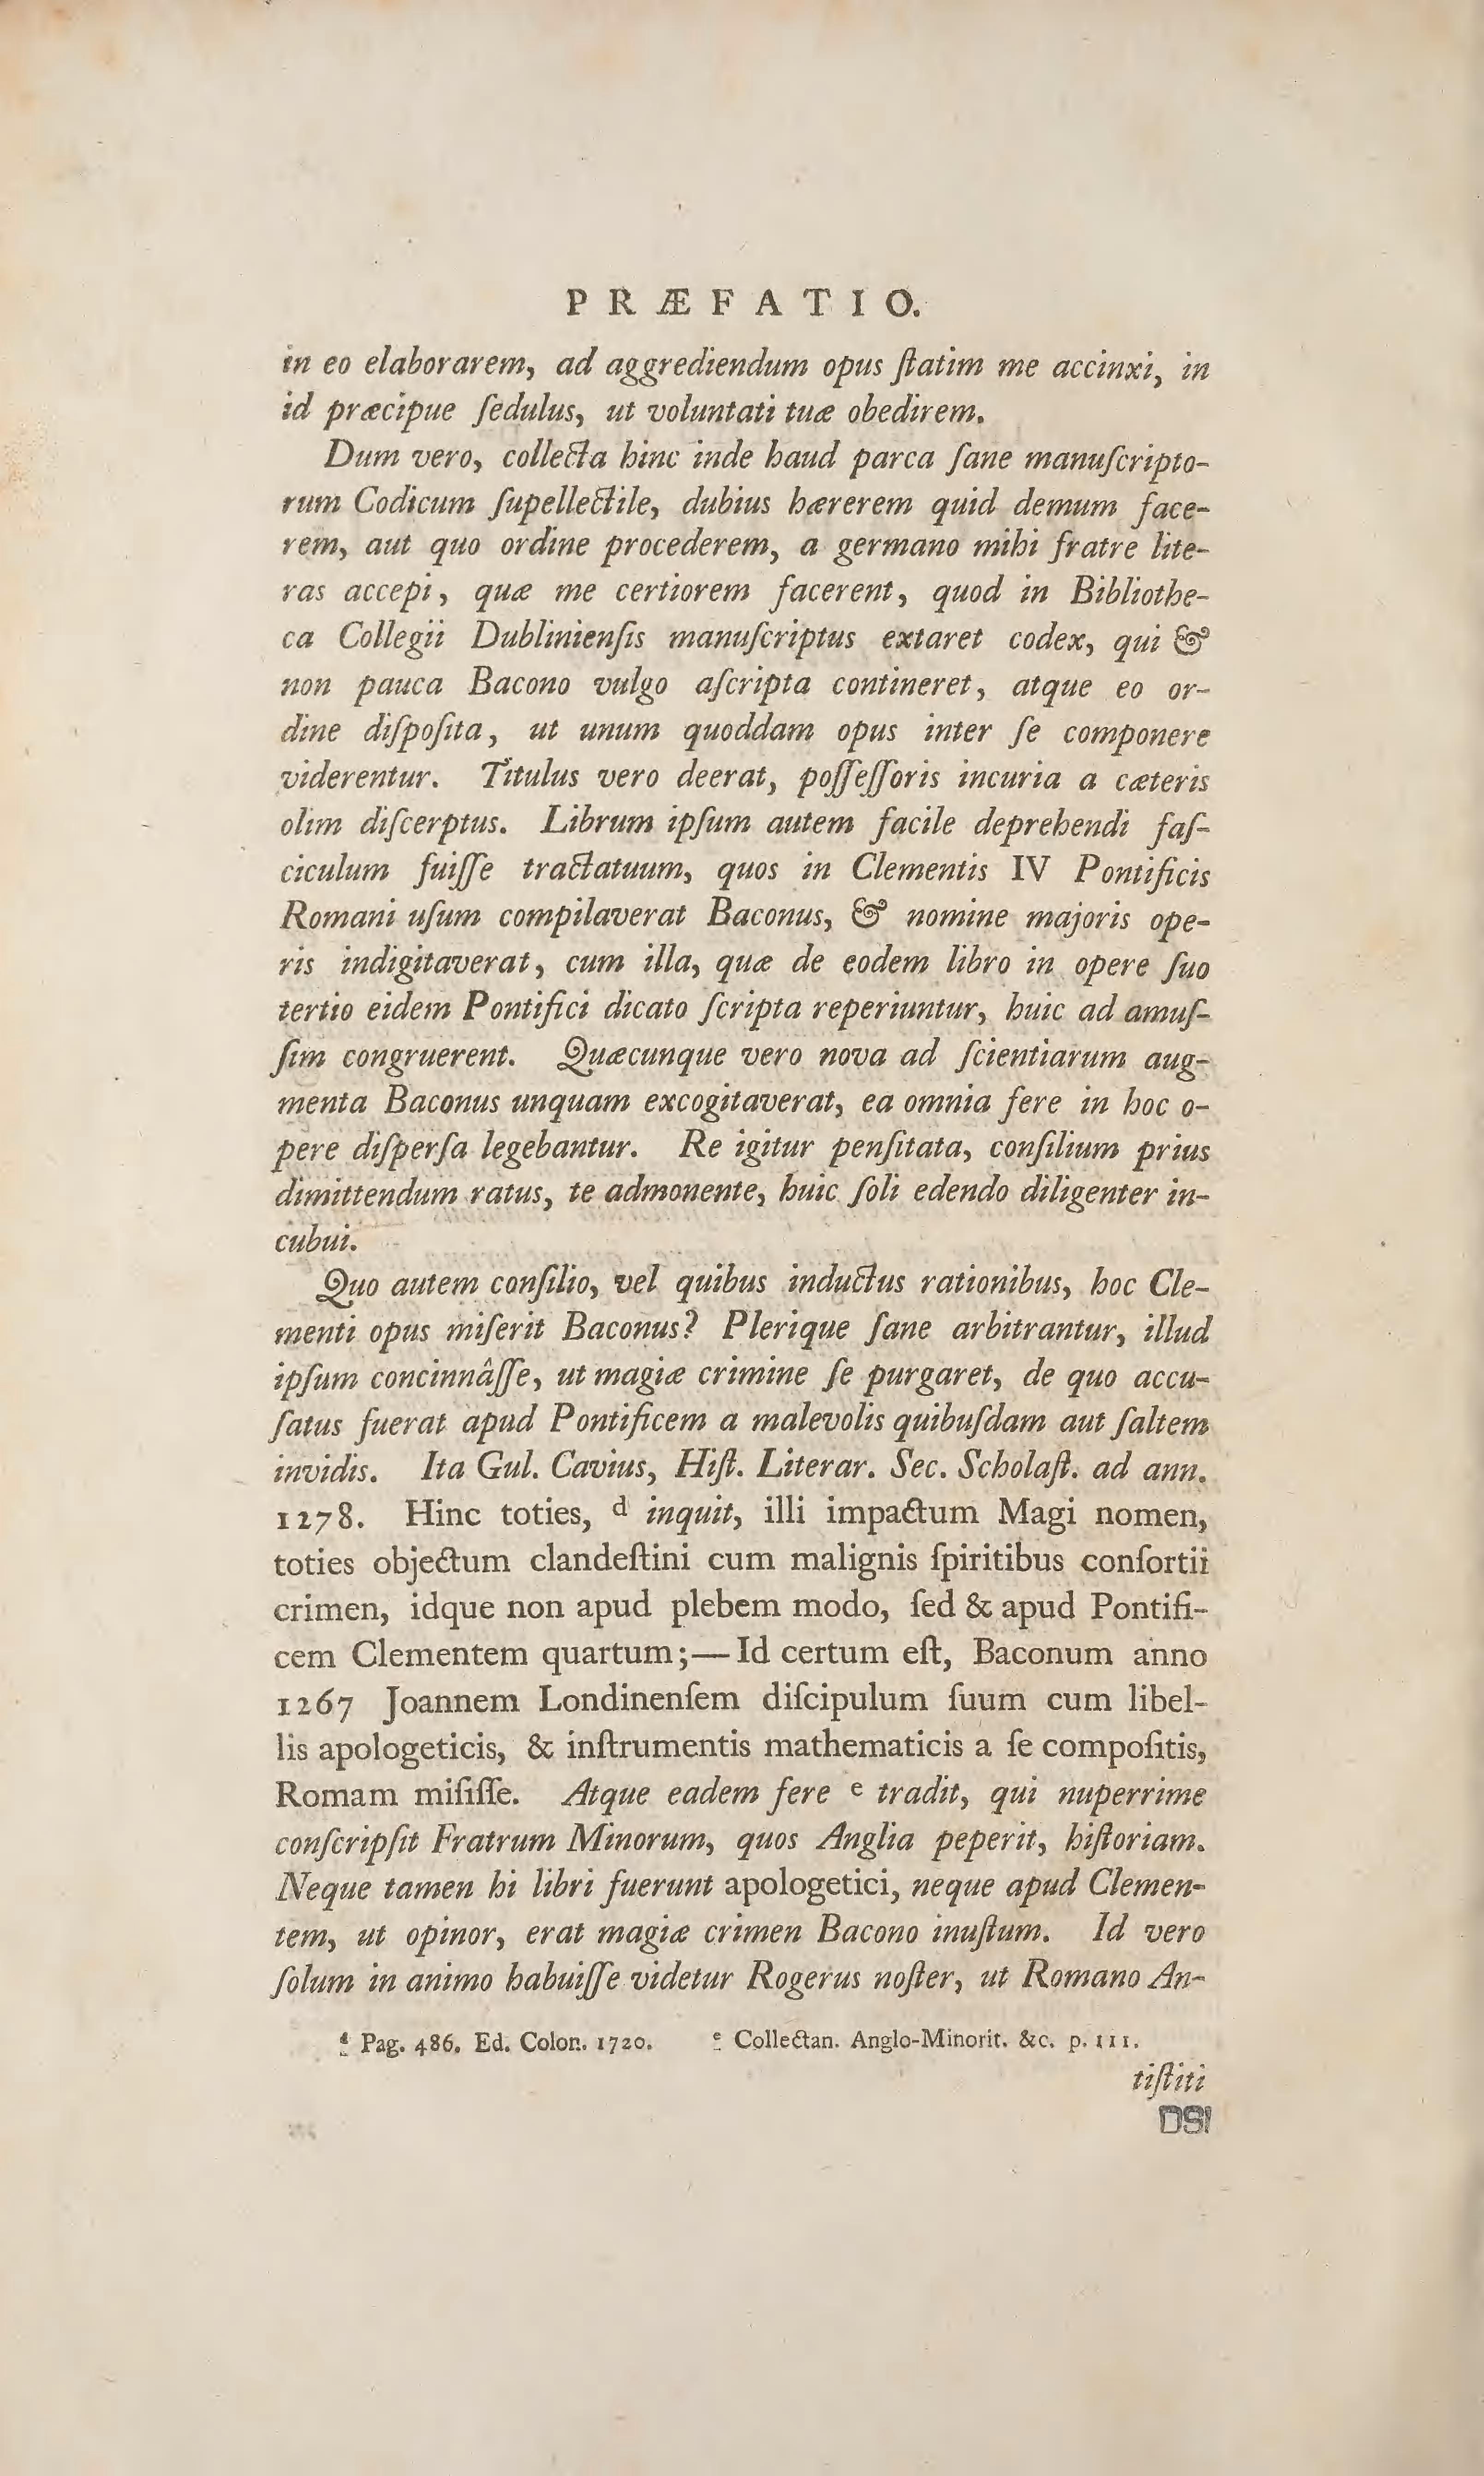 PRÆFATIO.
in eo elaborarem, ad aggrediendum opus ſtatim me accinxi, in
id præcipue ſedulus, ut voluntati tuæ obedirem.
Dum vero, collecta hinc inde haud parca ſane manuſcripto-
rum Codicum ſupellectile, dubius hærerem quid demum face-
rem, aut quo ordine procederem, a germano mihi fratre lite-
ras accepi, quæ me certiorem facerent, quod in Bibliothe-
ca Collegii Dublinienſis manuſcriptus extaret codex, qui &
non pauca Bacono vulgo aſcripta contineret, atque eo or-
dine diſpoſita, ut unum quoddam opus inter ſe componere
viderentur. Titulus vero deerat, poſſeſſoris incuria a cæteris
olim diſcerptus. Librum ipſum autem facile deprehendi faſ-
ciculum fuiſſe tractatuum, quos in Clementis IV Pontificis
Romani uſum compilaverat Baconus, & nomine majoris ope-
ris indigitaverat, cum illa, quæ de eodem libro in opere ſuo
tertio eidem Pontifici dicato ſcripta reperiuntur, huic ad amuſ-
ſim congruerent. Quæcunque vero nova ad ſcientiarum aug-
menta Baconus unquam excogitaverat, ea omnia fere in hoc o-
pere diſperſa legebantur. Re igitur penſitata, conſilium prius
dimittendum ratus, te admonente, huic ſoli edendo diligenter in-
cubui.
Quo autem conſilio, vel quibus inductus rationibus, hoc Cle-
menti opus miſerit Baconus? Plerique ſane arbitrantur, illud
ipſum concinnâſſe, ut magiæ crimine ſe purgaret, de quo accu-
ſatus fuerat apud Pontificem a malevolis quibuſdam aut ſaltem
invidis. Ita Gul. Cavius, Hiſt. Literar. Sec. Scholaſt. ad ann.
1278. Hinc toties, d inquit, illi impactum Magi nomen,
toties objectum clandeſtini cum malignis ſpiritibus conſortii
crimen, idque non apud plebem modo, ſed & apud Pontifi-
cem Clementem quartum;— Id certum eſt, Baconum anno
1267 Joannem Londinenſem diſcipulum ſuum cum libel-
lis apologeticis, & inſtrumentis mathematicis a ſe compoſitis,
Romam miſiſſe. Atque eadem fere e tradit, qui nuperrime
conſcripſit Fratrum Minorum, quos Anglia peperit, hiſtoriam.
Neque tamen hi libri fuerunt apologetici, neque apud Clemen-
tem, ut opinor, erat magiæ crimen Bacono inuſtum. Id vero
ſolum in animo habuiſſe videtur Rogerus noſter, ut Romano An-
d Pag. 486. Ed. Colon. 1720. e Collectan. Anglo-Minorit. &c. p. 111.
tiſtiti